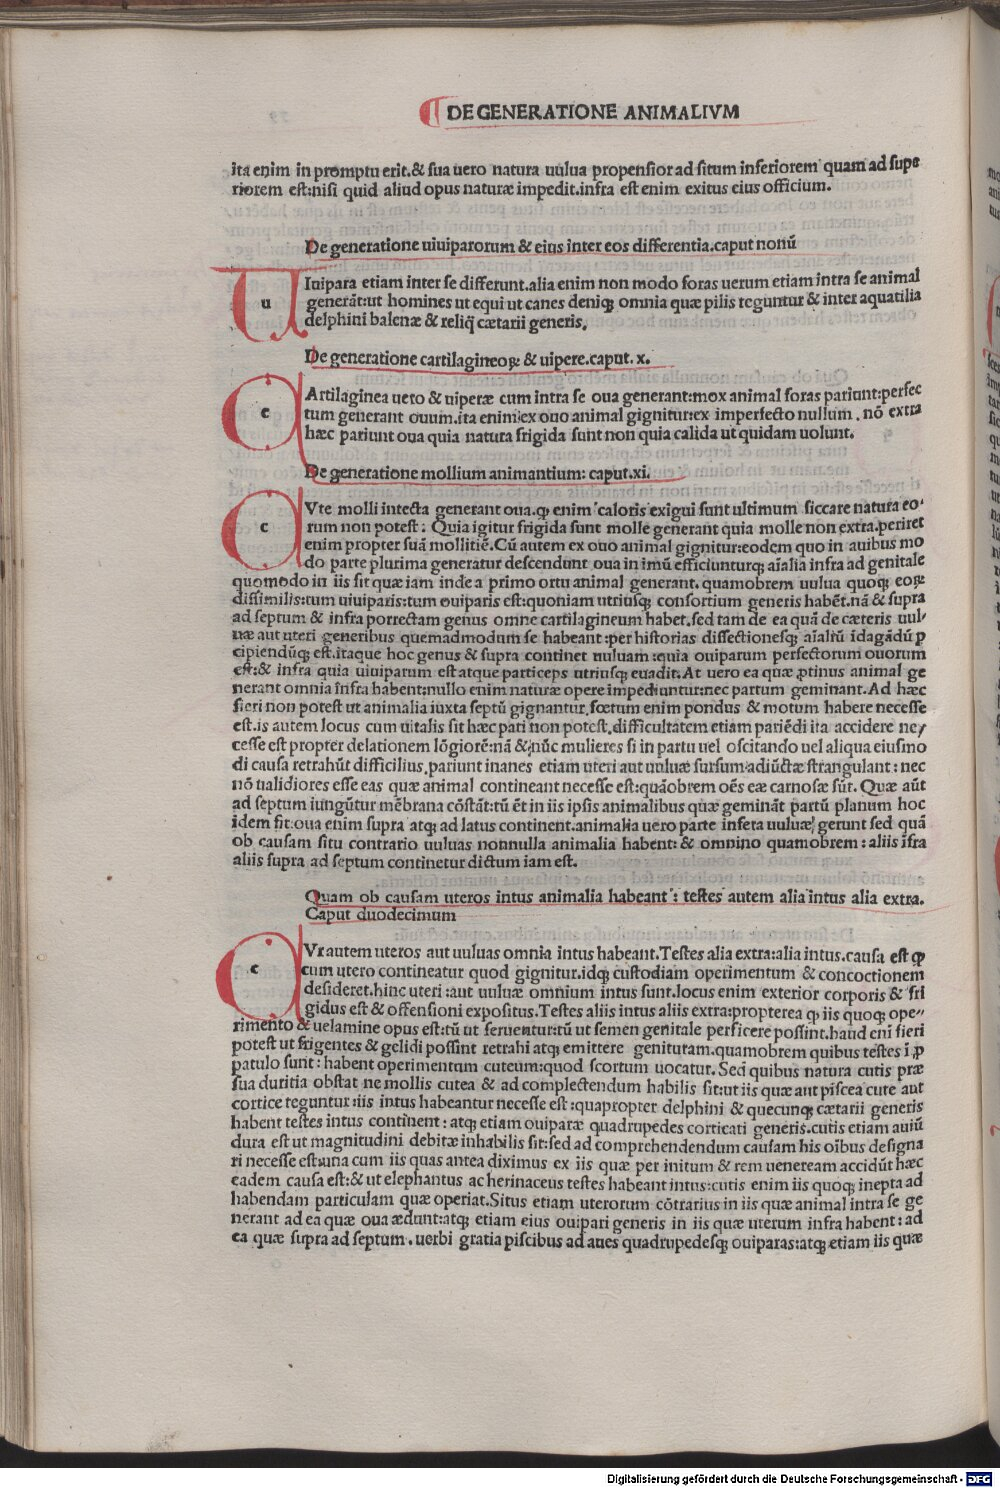 DE GENERATIONE ANIMALIVM
ita enim in promptu erit.& sua uero natura uulua propensior ad situm inferiorem quam ad supe
riorem est:nisi quid aliud opus naturæ impedit.infra est enim exitus eius officium.
De generatione uiuiparorum & eius inter eos differentia.caput nonũ
u
Iuipara etiam inter se differunt.alia enim non modo foras uerum etiam intra se animal
generãt:ut homines ut equi ut canes deniqꝫ omnia quæ pilis teguntur & inter aquatilia
delphini balenæ & reliq̃ cætarii generis.
De generatione cartilagineoꝝ & uipere.caput. x.
c
Artilaginea ueto & uiperæ cum intra se oua generant:mox animal foras pariunt:perfec
tum generant ouum.ita enim:ex ouo animal gignitur:ex imperfecto nullum . nõ extra
hæc pariunt oua quia natura frigida sunt non quia calida ut quidam uolunt.
De generatione mollium animantium: caput.xi.
c
Vte molli intecta generant oua.ꝙ enim caloris exigui sunt ultimum siccare natura eo-
rum non potest: Quia igitur frigida sunt molle generant quia molle non extra.periret
enim propter suã mollitiẽ.Cũ autem ex ouo animal gignitur:eodem quo in auibus mo
do parte plurima generatur descendunt oua in imũ efficiunturqꝫ aĩalia infra ad genitale
quomodo in iis sit quæ iam inde a primo ortu animal generant.quamobrem uulua quoqꝫ eoꝝ
dissimilis:tum uiuiparis:tum ouiparis est:quoniam utriusqꝫ consortium generis habẽt.nã & supra
ad septum & infra porrectam genus omne cartilagineum habet.sed tam de ea quã de cæteris uul-
uæ aut uteri generibus quemadmodum se habeant:per historias dissectionesqꝫ aĩaltũ idagãdũ ꝑ
cipiendũqꝫ est.itaque hoc genus & supra continet uuluam:quia ouiparum perfectorum ouorum
est:& infra quia uiuiparum est atque particeps utriusqꝫ euadit.At uero ea quæ ꝓtinus animal ge
nerant omnia infra habent:nullo enim naturæ opere impediuntur:nec partum geminant.Ad hæc
fieri non potest ut animalia iuxta septũ gignantur.fœtum enim pondus & motum habere necesse
est.is autem locus cum uitalis sit hæc pati non potest.difficultatem etiam pariẽdi ita accidere ne/
cesse est propter delationem lõgiorẽ:nã & nũc mulieres si in partu uel oscitando uel aliqua eiusmo
di causa retrahũt difficilius.pariunt inanes etiam uteri aut uuluæ sursum adiũctæ strangulant: nec
nõ ualidiores esse eas quæ animal contineant necesse est:quãobrem oẽs eæ carnosæ sũt. Quæ aũt
ad septum iungũtur mẽbrana cõstãt:tũ ẽt in iis ipsis animalibus quæ geminãt partũ planum hoc
idem fit:oua enim supra atqꝫ ad latus continent.animalia uero parte infera uuluæ gerunt sed quã
ob causam situ contrario uuluas nonnulla animalia habent: & omnino quamobrem: aliis ĩfra
aliis supra ad septum continetur dictum iam est.
Quam ob causam uteros intus animalia habeant : testes autem alia intus alia extra.
Caput duodecimum
c
Vr autem uteros aut uuluas omnia intus habeant.Testes alia extra:alia intus.causa est ꝙ
cum utero contineatur quod gignitur.idqꝫ custodiam operimentum & concoctionem
desideret.hinc uteri :aut uuluæ omnium intus sunt.locus enim exterior corporis & fri
gidus est & offensioni expositus.Testes aliis intus aliis extra:propterea ꝙ iis quoqꝫ ope-
rimento & uelamine opus est:tũ ut seruentur:tũ ut semen genitale perficere possint.haud eni fieri
potest ut frigentes & gelidi possint retrahi atqꝫ emittere genituram.quamobrem quibus testes ĩ ꝓ
patulo sunt: habent operimentum cuteum:quod scortum uocatur. Sed quibus natura cutis præ
sua duritia obstat ne mollis cutea & ad complectendum habilis sit:ut iis quæ aut piscea cute aut
cortice teguntur :iis intus habeantur necesse est :quapropter delphini & quecunqꝫ cætarii generis
habent testes intus continent: atqꝫ etiam ouiparæ quadrupedes corticati generis.cutis etiam auiũ
dura est ut magnitudini debitæ inhabilis sit:sed ad comprehendendum causam his oĩbus designa
ri necesse est:una cum iis quas antea diximus ex iis quæ per initum & rem ueneream accidũt hæc
eadem causa est:& ut elephantus ac herinaceus testes habeant intus:cutis enim iis quoqꝫ inepta ad
habendam particulam quæ operiat.Situs etiam uterorum cõtrarius in iis quæ animal intra se ge
nerant ad ea quæ oua ædunt:atqꝫ etiam eius ouipari generis in iis quæ uterum infra habent: ad
ea quæ supra ad septum . uerbi gratia piscibus ad aues quadrupedesqꝫ ouiparas:atqꝫ etiam iis quæ
Digitalisierung gefördert durch die Deutsche Forschungsgemeinschaft - DFG